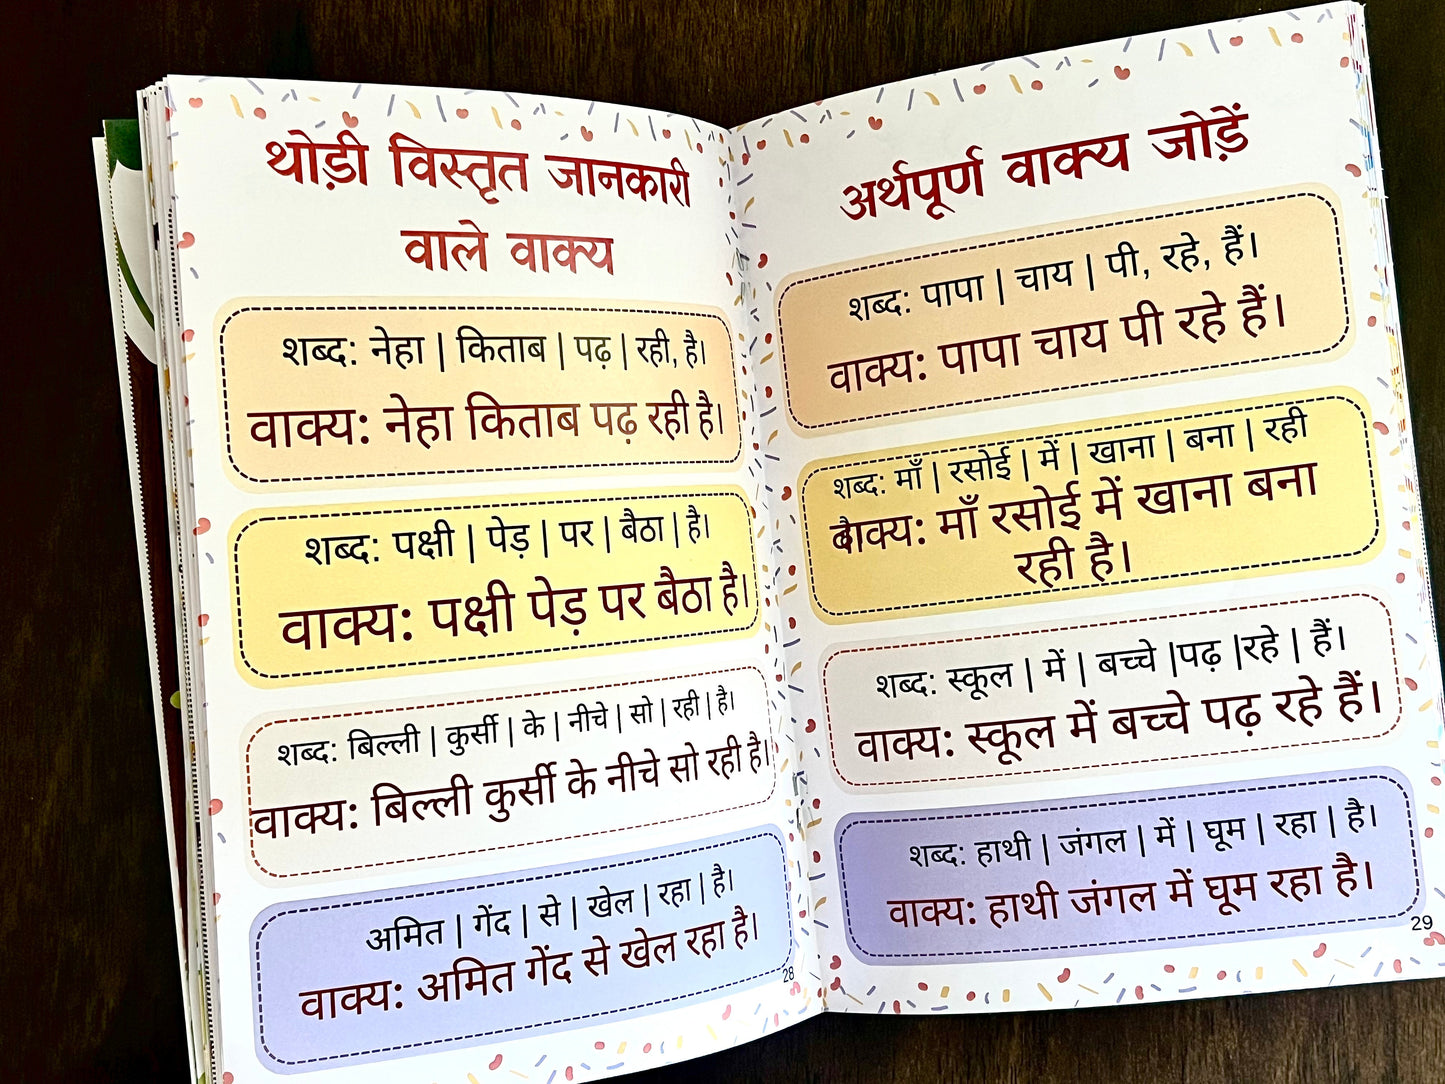 थोड़ी विस्तृत जानकारी
वाले वाक्य
शब्द: नेहा | किताब | पढ़ | रही, है।
वाक्य: नेहा किताब पढ़ रही है।
शब्द: पक्षी | पेड़ | पर | बैठा | है।
वाक्य: पक्षी पेड़ पर बैठा है।
शब्द: बिल्ली | कुर्सी | के | नीचे | सो | रही | है।
वाक्य: बिल्ली कुर्सी के नीचे सो रही है।
अमित | गेंद | से | खेल | रहा | है।
वाक्य: अमित गेंद से खेल रहा है।
28
अर्थपूर्ण वाक्य जोड़ें
शब्द: पापा | चाय | पी, रहे, हैं।
वाक्य: पापा चाय पी रहे हैं।
शब्द: माँ | रसोई | में | खाना | बना | रही
वाक्य: माँ रसोई में खाना बना
रही है।
शब्द: स्कूल | में | बच्चे |पढ़ |रहे | हैं।
वाक्य: स्कूल में बच्चे पढ़ रहे हैं।
शब्द: हाथी | जंगल | में | घूम | रहा | है।
वाक्य: हाथी जंगल में घूम रहा है।
29